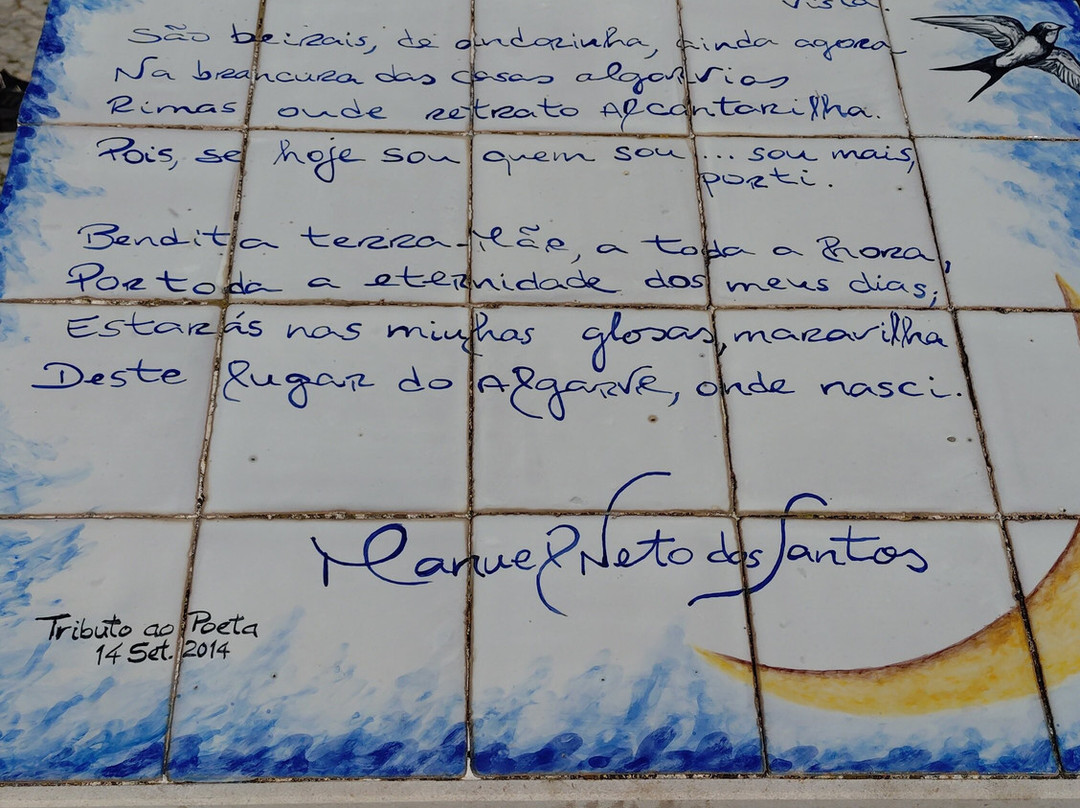 vista.
São beirais, de andorinha, ainda agora
Na brancura das casas algarvias
Rimas onde retrato Alcantarilha.
Pois, se hoje sou quem sou... sou mais,
por ti.
Bendita terra-Mãe, a toda a hora,
Por toda a eternidade dos meus dias;
Estarás nas minhas glosas, maravilha
Deste lugar do Algarve, onde nasci.
Manuel Neto dos Santos
Tributo ao Poeta
14 Set. 2014